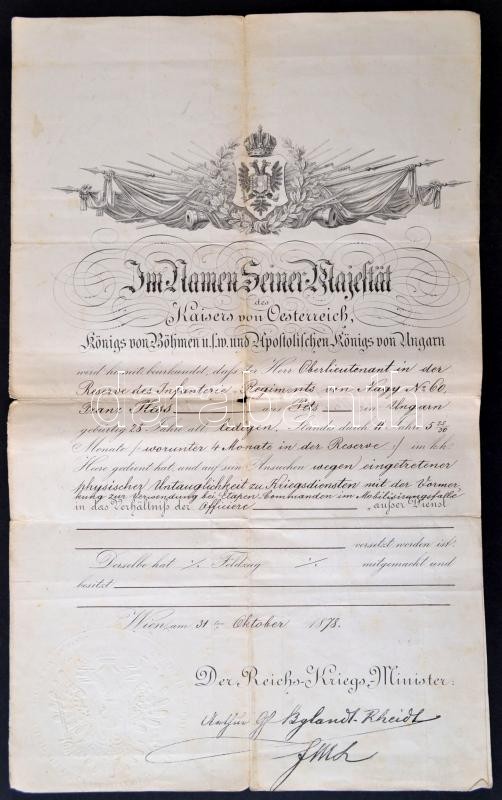 Im Namen Seiner Majestät
des
Kaisers von Oesterreich,
Königs von Böhmen u.s.w. und Apostolischen Königs von Ungarn
wird hiemit beurkundet, daß der Herr Oberlieutenant in der
Reserve des Infanterie-Regiments von Nagy No 60,
Franz Hess aus Pets in Ungarn
gebürtig 28 Jahre alt, ledigen Standes durch 4 Jahre 5 25/30
Monate /: worunter 4 Monate in der Reserve :/ im k.k.
Heere gedient hat, und auf sein Ansuchen wegen eingetretener
physischer Untauglichkeit zu Kriegsdiensten mit der Vormer-
kung zur Verwendung bei Etapen-Commanden im Mobilisirungsfalle
in das Verhältniß der Officiere außer Dienst
versetzt worden ist.
Derselbe hat ./. Feldzug ./. mitgemacht und
besitzt
Wien, am 31ten Oktober 1878.
Der Reichs-Kriegs-Minister:
Arthur Gf Bylandt-Rheidt
FML
darabanth